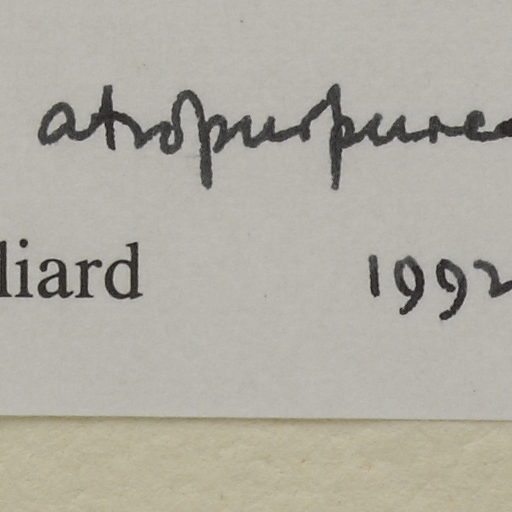 atropurpurea
lliard 1992